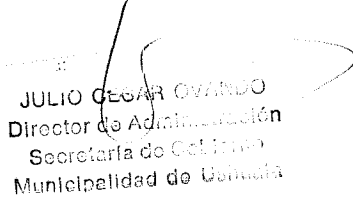 JULIO CESAR OVANDO
Director de Administración
Secretaría de Gobierno
Municipalidad de Ushuaia